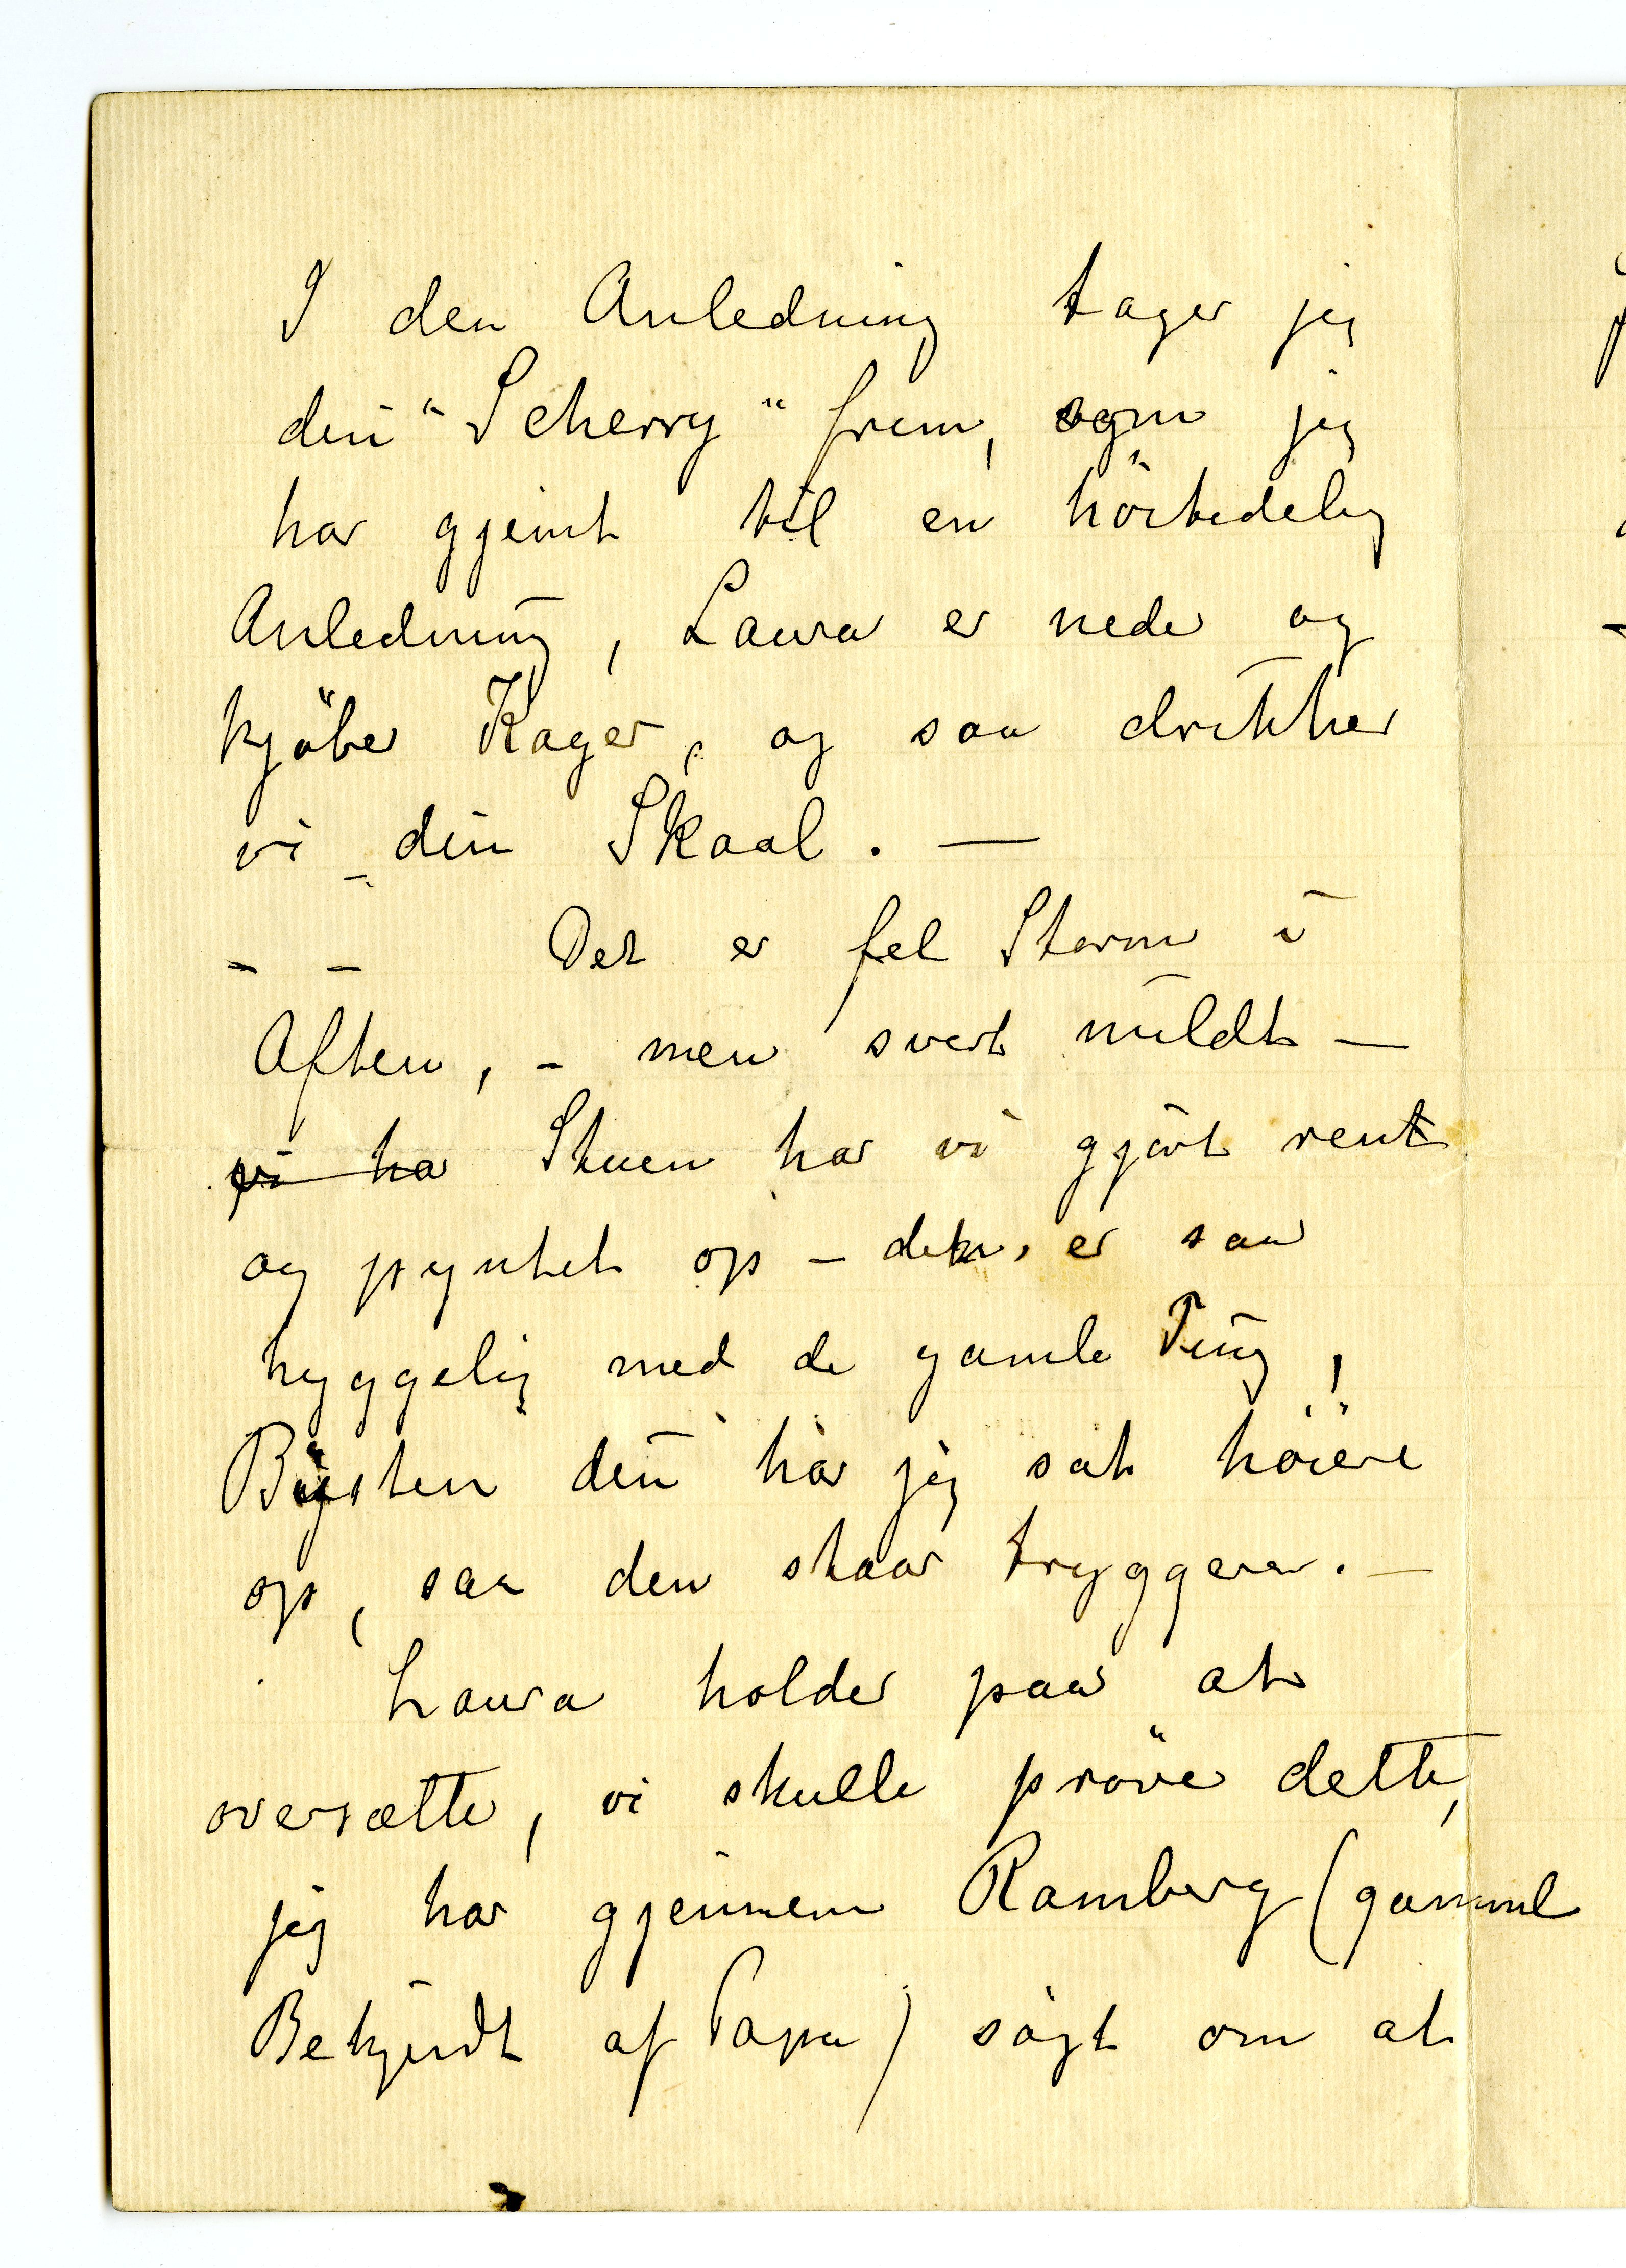 I den Anledning tager jeg
din "Scherry" frem, som jeg
har gjemt til en höitidelig
Anledning, Laura er nede og
kjöber Kager, og saa drikker
vi din Skaal. —
– – Det er fel Storm i
Aften, – men svert mildt –
vi ha Stuen har vi gjört rent
og pyntet op – den er saa
hyggelig med de gamle Ting,
Bysten din har jeg sat höiere
op, saa den staar tryggere. –
Laura holder paa at
oversætte, vi skulle pröve dette,
jeg har gjennem Ramberg (gammel
Bekjendt af Papa) sögt om at